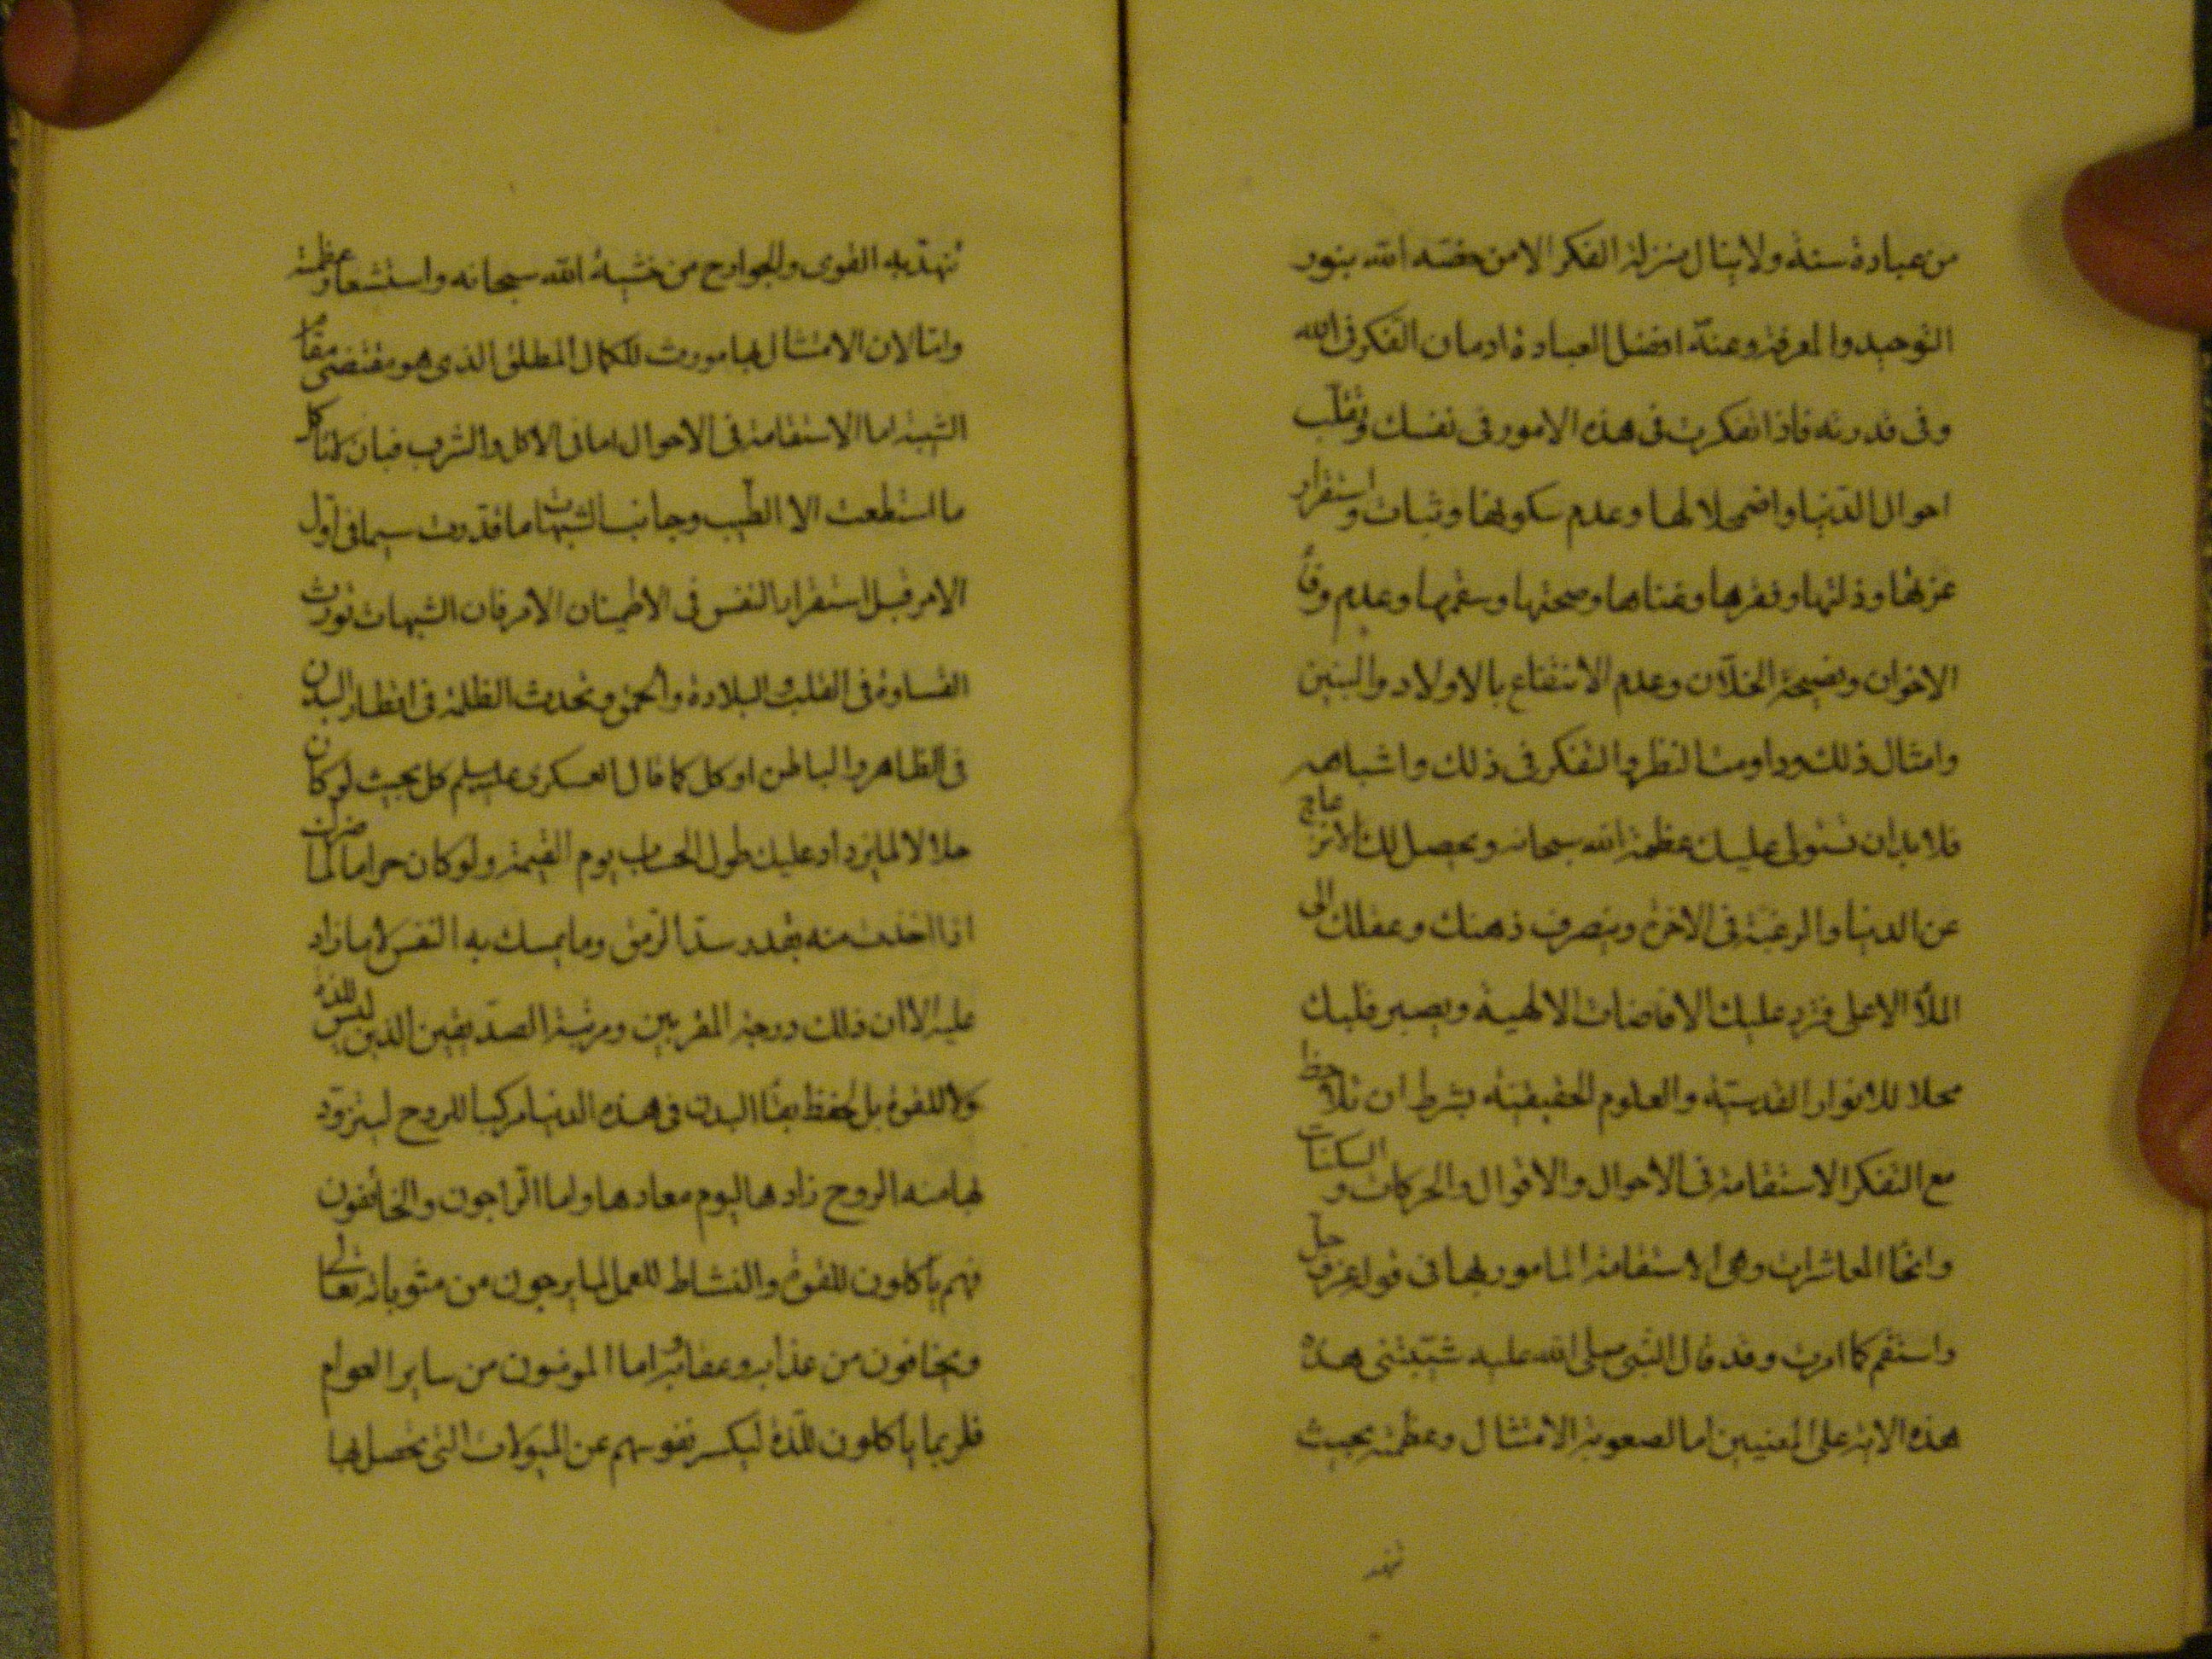 من عبادة سنة ولا ينال منزلة الفكر الا من خصه الله بنور
التوحيد والمعرفة وعنه افضل العبادة ادمان التفكر فى الله
وفى قدرته فاذا تفكرت فى هذه الامور فى نفسك وتقلب
احوال الدنيا واضمحلالها وعدم سكونها وثبات واستقرار
عزتها وذلتها وفقرها وغناها وصحتها وسقمها وعدم وفاء
الاخوان ونصيحة الخلان وعدم الانتفاع بالاولاد والبنين
وامثال ذلك وداومت النظر والتفكر فى ذلك واشباهه
فلا بد ان تستولى عليك عظمة الله سبحانه ويحصل لك الانزعاج
عن الدنيا والرغبة فى الاخرة وينصرف ذهنك وعقلك الى
الملأ الاعلى فترد عليك الافاضات الالهية ويصير قلبك
محلا للانوار القدسية والعلوم الحقيقية بشرط ان تلاحظ
مع التفكر الاستقامة فى الاحوال والاقوال والحركات والسكنات
وانحاء المعاشرات وهى الاستقامة المامور بها فى قوله عز وجل
واستقم كما امرت وقد قال النبى صلى الله عليه شيبتنى هذه
هذه الاية على المعنيين اما لصعوبة الامتثال وعظمته بحيث
تهد
تهد به القوى والجوارح من خشية الله سبحانه واستشعار عظمته
واما لان الامتثال بها مورث للكمال المطلق الذى هو مقتضى مقام
الشيبة اما الاستقامة فى الاحوال اما فى الاكل والشرب فبان لا تاكل
ما استطعت الا الطيب وجانب الشبهات ما قدرت سيما فى اول
الامر قبل استقرار النفس فى الاطمينان الامر فان الشبهات تورث
القساوة فى القلب والبلادة والحمق وتحدث الظلمة فى اقطار البدن
فى الظاهر والباطن او كل كما قال العسكرى عليه السلم كل بحيث لو كان
حلالا لما يزداد عليك طول الحساب يوم القيمة ولو كان حراما لما ضرك
اذا اخذت منه بقدر سد الرمق وما يمسك به النفس لا ما زاد
عليه الا ان ذلك درجة المقربين ومرتبة الصديقين الذين ليس للذة
ولا للقوة بل لحفظ بقاء البدن فى هذه الدنيا مركبا للروح ليتزود
بها منه الروح زادها ليوم معادها واما الراجون والخائفون
فهم ياكلون للقوة والنشاط للعمل لما يرجون من مثوباته تعالى
ويخافون من عذابه وعقابه واما المومنون من ساير العوام
فلربما ياكلون للذة ليكسر نفوسهم عن الميولات التى يحصل بها